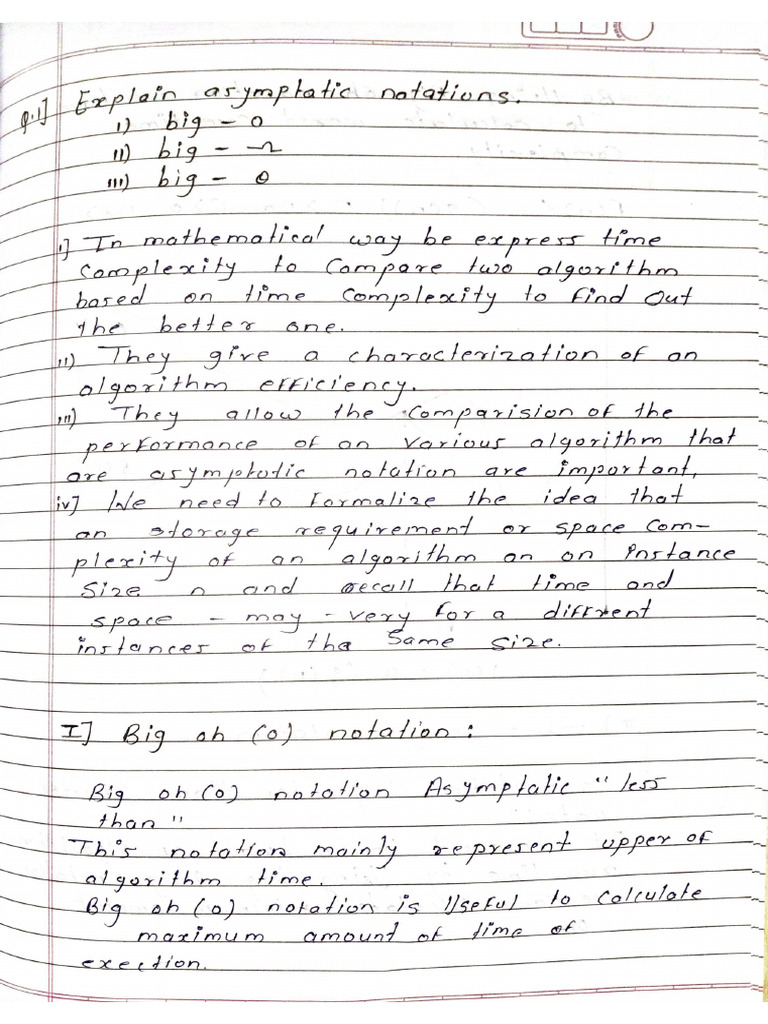 Q.1] Explain asymptatic notations.
i) big - O
ii) big - Ω
iii) big - θ
i] In mathematical way be express time
complexity to compare two algorithm
based on time complexity to find out
the better one.
ii) They give a characterization of an
algorithm efficiency.
iii) They allow the comparision of the
performance of an various algorithm that
are asymptotic notation are important,
iv] We need to formalize the idea that
an storage requirement or space com-
plexity of an algorithm on on instance
size n and recall that time and
space - may - very for a diffrent
instances of the same size.
I] Big oh (o) notation :
Big oh (o) notation Asymptatic "less
than"
This notation mainly represent upper of
algorithm time.
Big oh (o) notation is Useful to calculate
maximum amount of time of
exection.